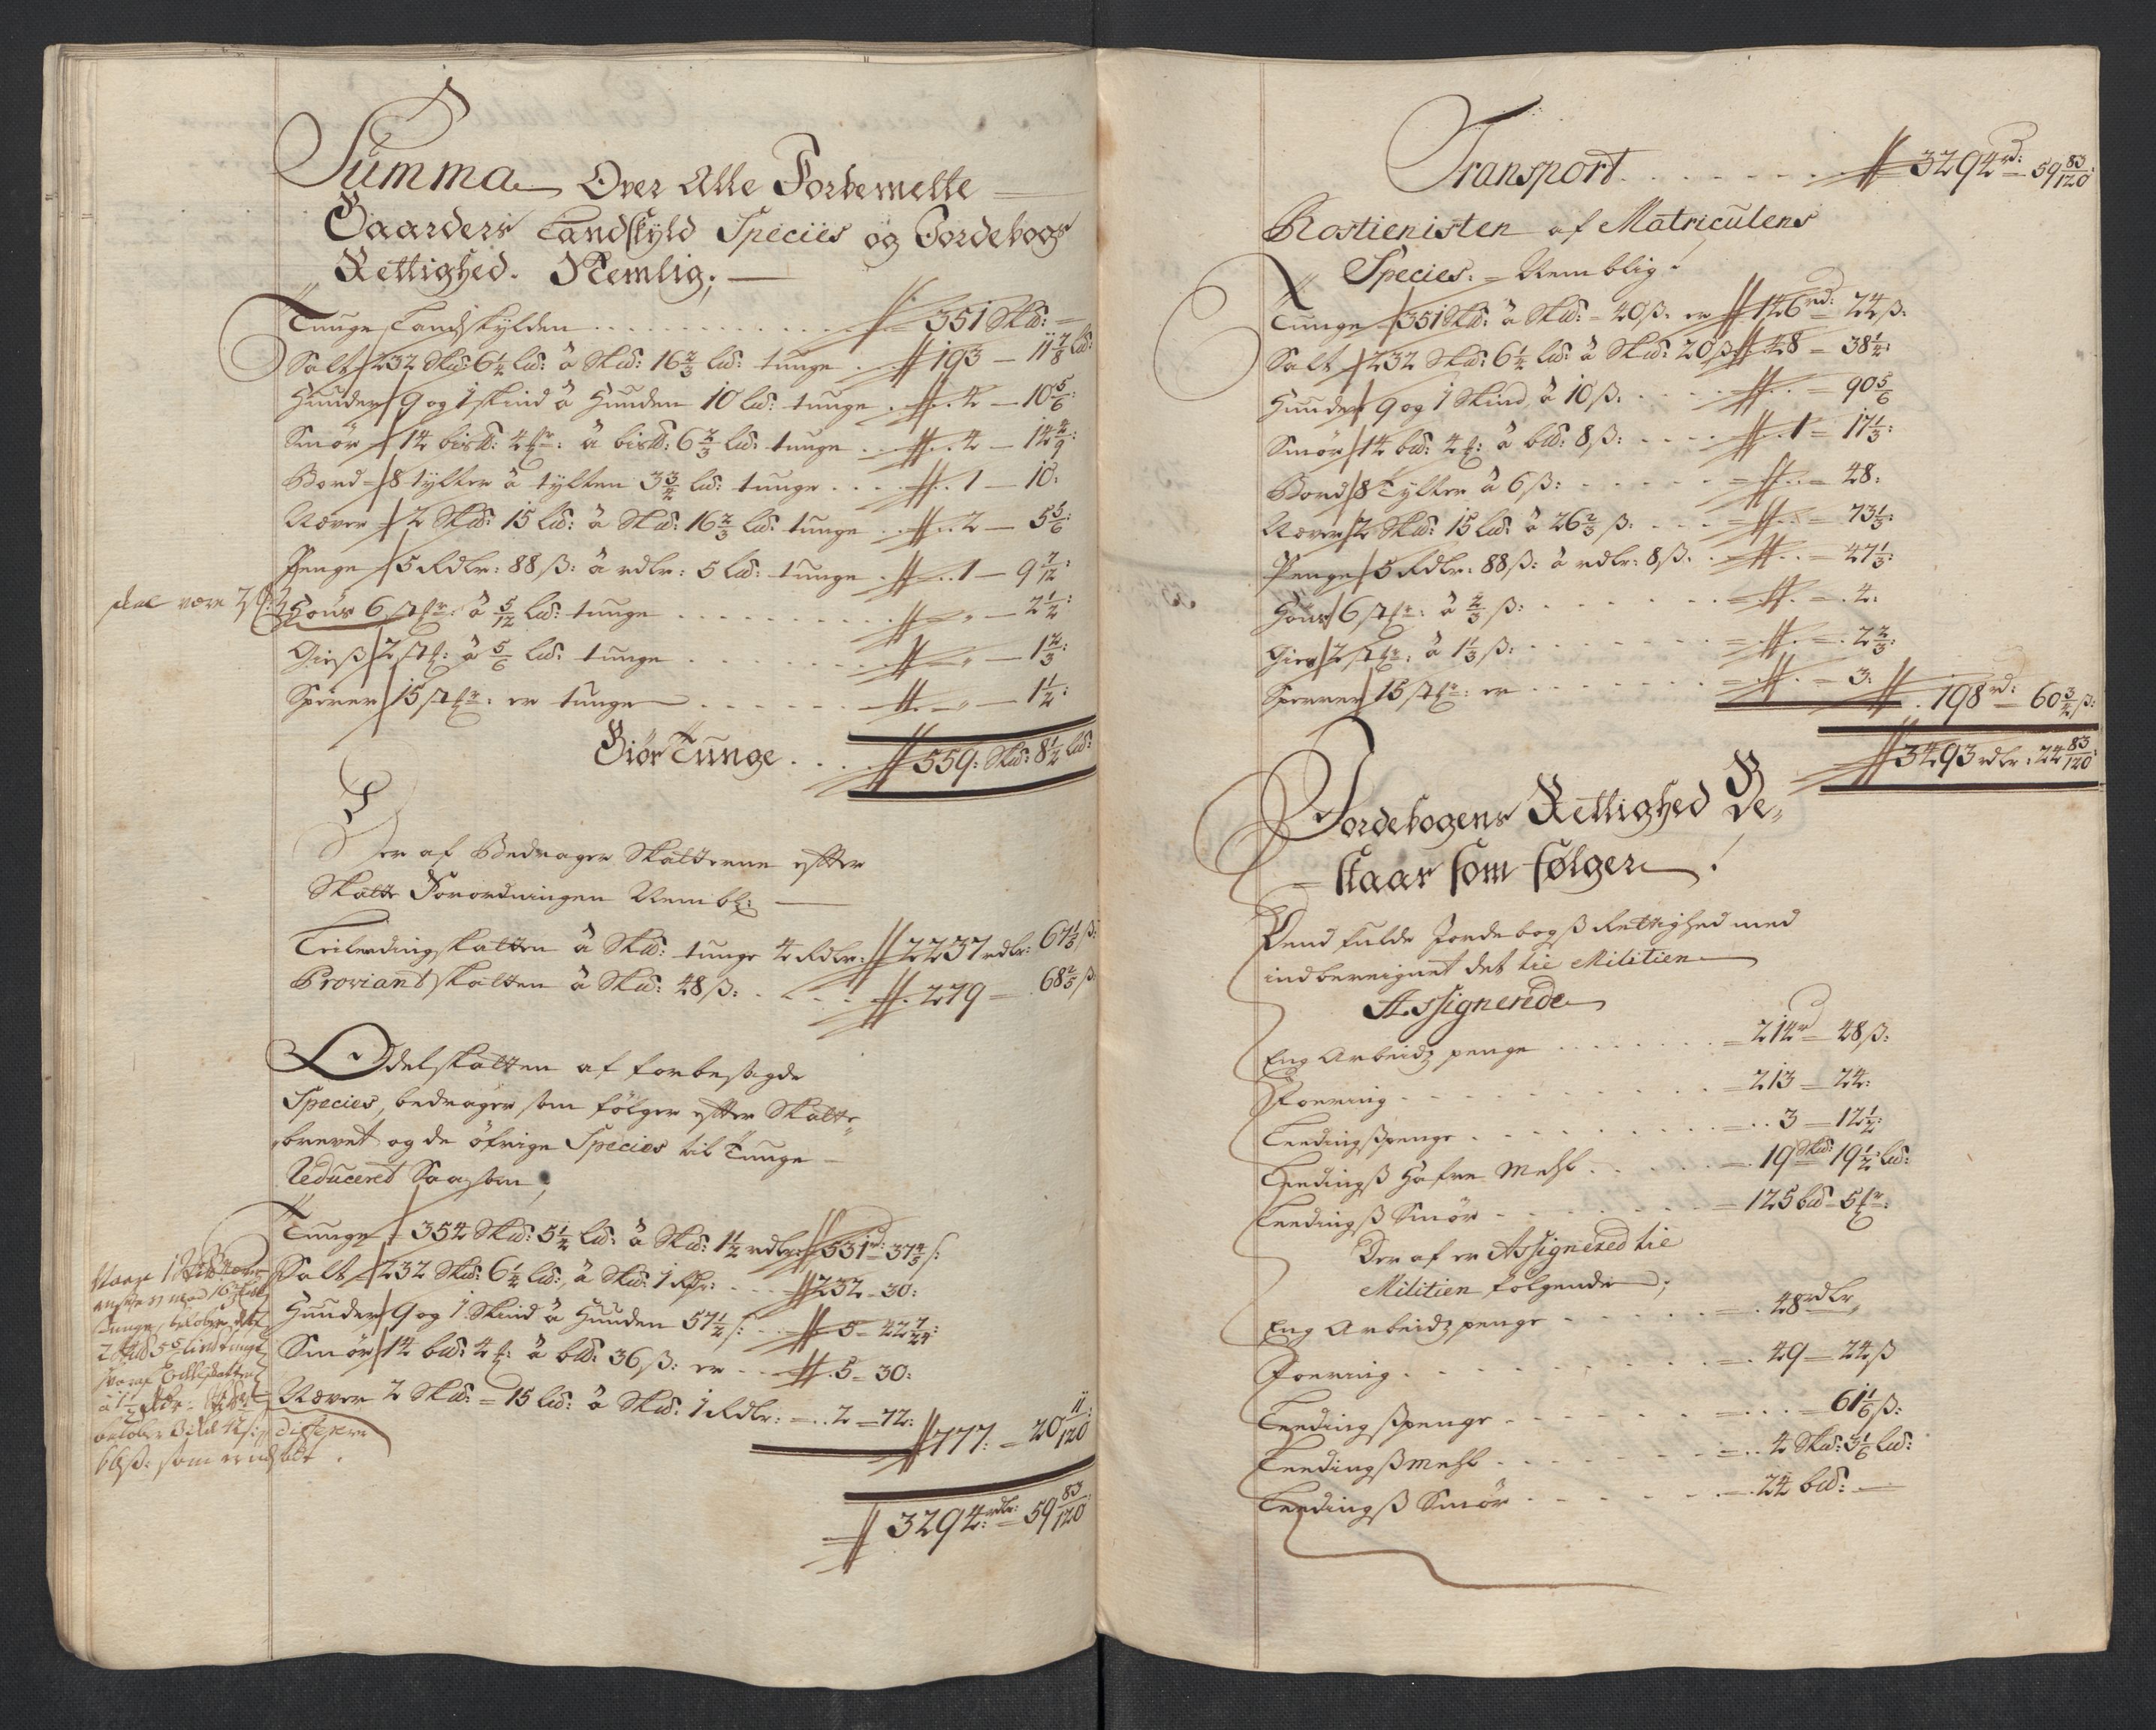 Summa Over Alle Forbemelte
Gaarders Landskyld Speciës og Jordebogs
Rettighed. Nemlig;
Tunge Landskylden 351 Skd:
Salt 232 Skd: 6 1/4 ld: â Skd: 16 2/3 ld: tunge 193 – 11 7/8 ld:
Huuder 9 og 1 skind â Huuden 10 ld: tunge 4 – 10 5/6:
Smör 14 bisk: 4 : â bisk: 6 2/3 ld: tunge 4 – 14 4/9:
Bord 8 tylter â tylten 3 3/4 ld: tunge 1 – 10:
Næver 2 Skd: 15 ld: â Skd: 16 2/3 ld: tunge 2 – 5 5/6:
Penge 5 Rdlr: 88 ß: â rdlr: 5 ld: tunge 1 – 9 7/12:
skal være 7
Höns 6 st: â 5/12 ld: tunge – 2 1/2:
Giess 2 st: â 5/6 ld: tunge – 1 2/3:
Sperrer 15 st: er tunge – 1 1/2:
Giör Tunge 559: Skd: 8 1/2 ld:
Her af Bedrager Skatterne efter
Skatte Forordningen Nembl:
Leilendingskatten â Skd: tunge 4 Rdlr: 2237 rdlr: 67 1/5 ß:
Proviantskatten â Skd: 48 ß: 279 – 68 2/5 ß:
Odelskatten af forbesagde
Species, bedrager som fölger efter Skatte
brevet og de öfrige Species til Tunge
Reduceret Saasom,
Tunge 354 Skd: 5 1/4 ld: â Skd: 1 1/2 rdlr: 531 rd: 37 4/5 :
Salt 232 Skd: 6 1/4 ld: â Skd: 1 Rdr: 232 – 30:
Huuder 9 og 1 Skind â Huuden 57 1/2 : 5 – 22 7/24:
Smör 14 bd: 4 : â bd: 36 ß: er 5 – 30:
Næver 2 Skd: 15 ld: â Skd: 1 Rdlr: 2 – 72: 777: – 20 11/120
3294: rdlr: 59 83/120
Transport 3294 rd: 59 83/120:
Rostienisten af Matriculens
Species: Nemblig:
Tunge 351 Skd: â Skd: 40 ß: er 146 rd: 24 ß:
Salt 232 Skd: 6 1/4 ld: â Skd: 20 ß 48 – 38 1/4:
Huuder 9 og 1 Skind â 10 ß: – 90 5/6
Smör 14 bd: 4 : â bd: 8 ß: 1 – 17 1/3:
Bord 8 Tylter â 6 ß: – 48:
Næver 2 Skd: 15 ld: â 26 2/3 ß: – 73 1/3:
Penge 5 Rdlr: 88 ß: â rdlr: 8 ß: – 47 1/3:
Höns 6 st: â 2/3 ß: – 4:
Gies 2 st: â 1 1/3 ß: – 2 2/3:
Sperrer 15 st: er – 3: 198 rd: 60 3/4 ß:
3493 rdlr: 24 83/120:
Jordebogens Rettighed Be-
staar som fölger
Dend fulde Jordebogs Rettighed med
indbereignet det til Militien
Assignerede
Eng Arbeidz penge 214 rd 48 ß:
Foering 213 – 24:
Leedingspenge 3 – 12 1/2:
Leedings Hafre Mehl 19 Skd: 19 1/2 ld:
Leedings Smör 125 bd 5 :
Der af er Assignered til
Militien fölgende;
Eng Arbeidz penge 48 rdlr
Foering 49 – 24 ß
Leedingspenge 61 1/6 ß:
Leedingsmehl 4 Skd: 3 1/6 ld:
Leedings Smör 24 bd: